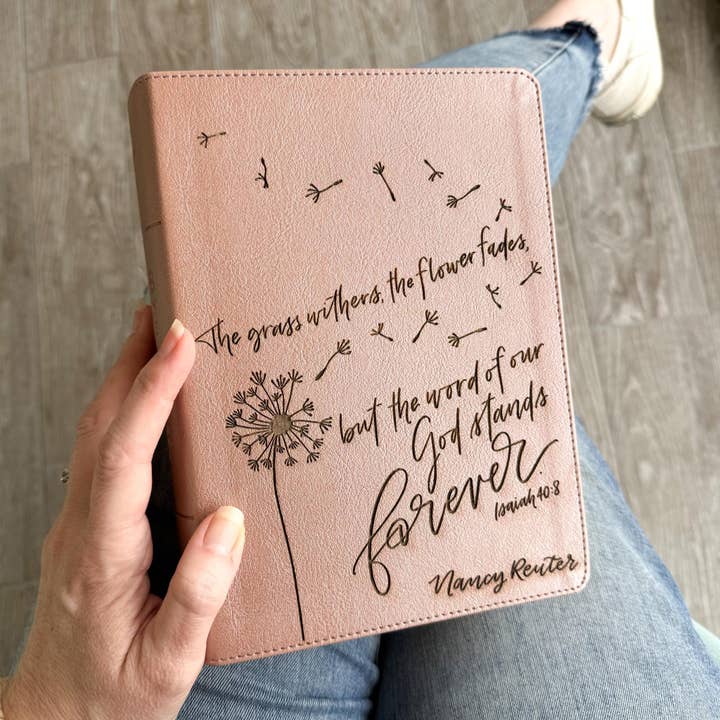 The grass withers, the flower fades,
but the word of our
God stands
forever.
Isaiah 40:8
Nancy Reuter